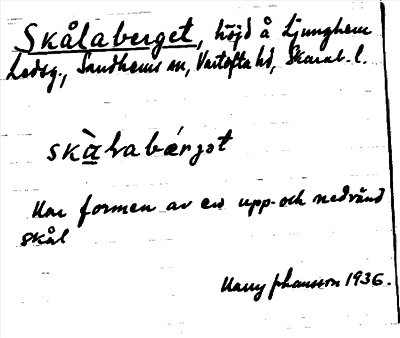 Skålaberget, höjd å Ljunghem
Ledsg., Sandhems sn, Vartofta hd, Skarab. l.
skàlabærjət
Har formen av en upp- och nedvänd
skål
Harry Johansson 1936.